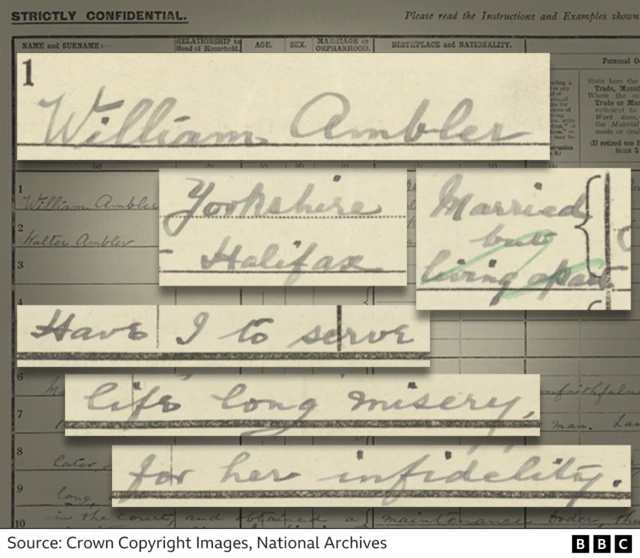 STRICTLY CONFIDENTIAL.
Please read the Instructions and Examples shown
NAME and SURNAME:-
RELATIONSHIP to Head of Household.
AGE.
SEX.
MARRIAGE or ORPHANHOOD.
BIRTHPLACE and NATIONALITY.
Personal
1
William Ambler
Yorkshire
Halifax
Married
but
living apart
1 William Ambler
2 Walter Ambler
3
4
Have I to serve
6
life long misery,
7
man.
for her infidelity.
8
later
9
long
10 in the County and obtained a maintenance order, the
Source: Crown Copyright Images, National Archives
BBC